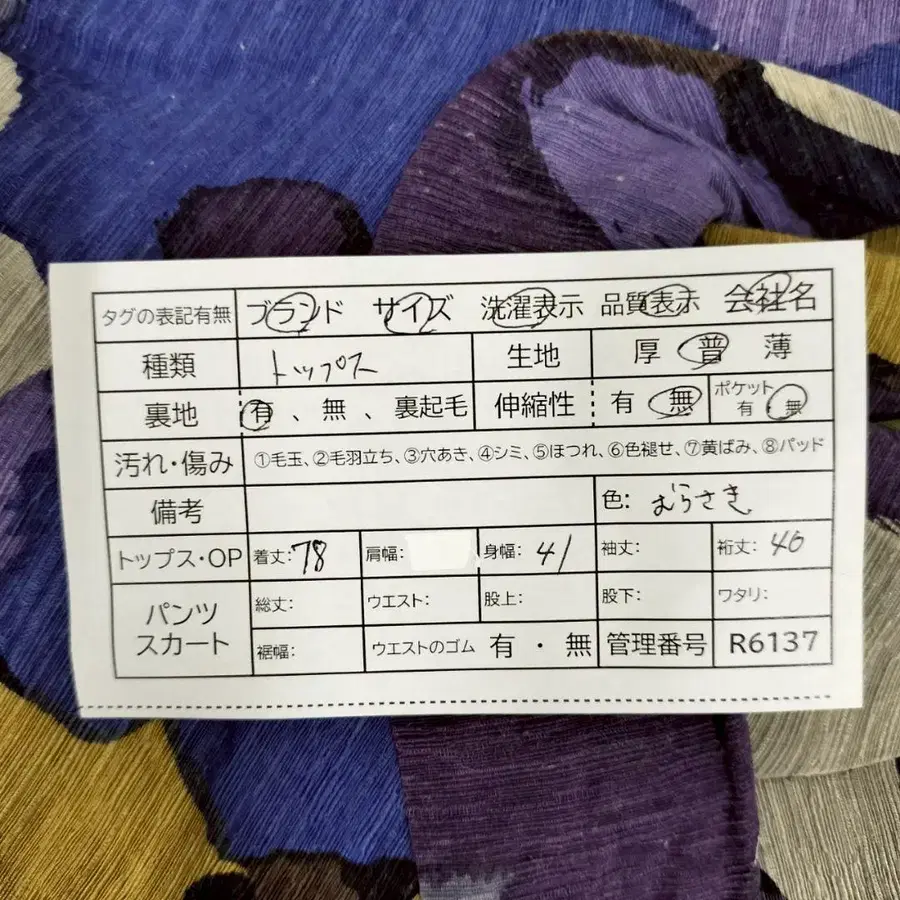 タグの表記有無 ブランド サイズ 洗濯表示 品質表示 会社名
種類 トップス 生地 厚 普 薄
裏地 有 、 無 、 裏起毛 伸縮性 有 無 ポケット 有 ・ 無
汚れ・傷み ①毛玉、②毛羽立ち、③穴あき、④シミ、⑤ほつれ、⑥色褪せ、⑦黄ばみ、⑧パッド
備考 色: むらさき
トップス・OP 着丈:78 肩幅: 身幅: 41 袖丈: 裄丈: 40
パンツ スカート 総丈: ウエスト: 股上: 股下: ワタリ:
裾幅: ウエストのゴム 有 ・ 無 管理番号 R6137